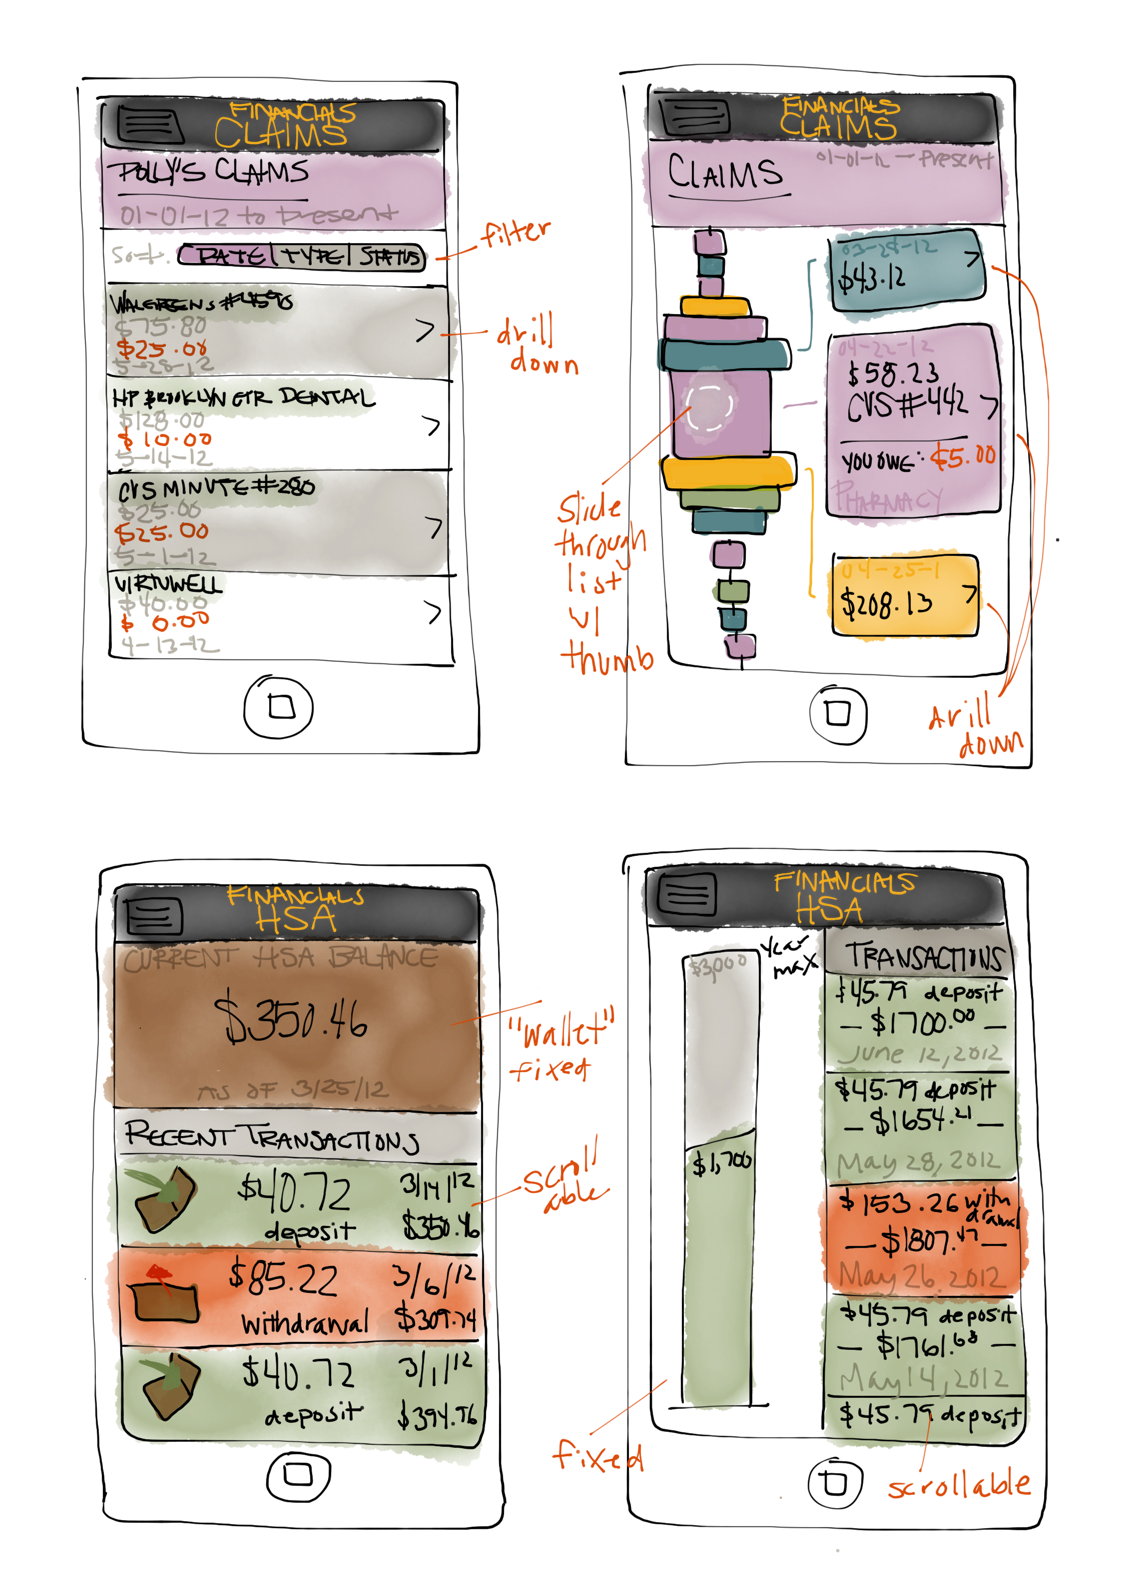 FINANCIALS
CLAIMS
POLLY'S CLAIMS
01-01-12 to present
Sort. DATE | TYPE | STATUS
WALGREENS #4590
$75.80
$25.00
5-28-12
HP BROOKLYN CTR DENTAL
$128.00
$10.00
5-14-12
CVS MINUTE #280
$25.00
$25.00
5-1-12
VIRTUWELL
$40.00
$ 0.00
4-13-12
filter
drill
down
FINANCIALS
CLAIMS
CLAIMS
01-01-12 — Present
03-28-12
$43.12
04-22-12
$58.23
CVS #442
YOU OWE: $5.00
PHARMACY
04-25-1
$208.13
Slide
through
list
w/
thumb
drill
down
FINANCIALS
HSA
CURRENT HSA BALANCE
$350.46
AS OF 3/25/12
RECENT TRANSACTIONS
$40.72 3/14/12
deposit $350.46
$85.22 3/6/12
withdrawal $309.74
$40.72 3/1/12
deposit $394.96
"wallet"
fixed
scroll
able
FINANCIALS
HSA
$3,000
year
max
$1,700
TRANSACTIONS
$45.79 deposit
— $1700.00 —
June 12, 2012
$45.79 deposit
— $1654.21 —
May 28, 2012
$153.26 with
drawal
— $1807.47 —
May 26, 2012
$45.79 deposit
— $1761.68 —
May 14, 2012
$45.79 deposit
fixed
scrollable